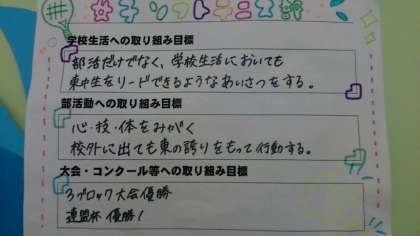 学校生活への取り組み目標
部活だけでなく、学校生活においても
東中生をリードできるようなあいさつをする。
部活動への取り組み目標
心・技・体をみがく
校外に出ても東の誇りをもって行動する。
大会・コンクール等への取り組み目標
3ブロック大会優勝
連盟杯 優勝!